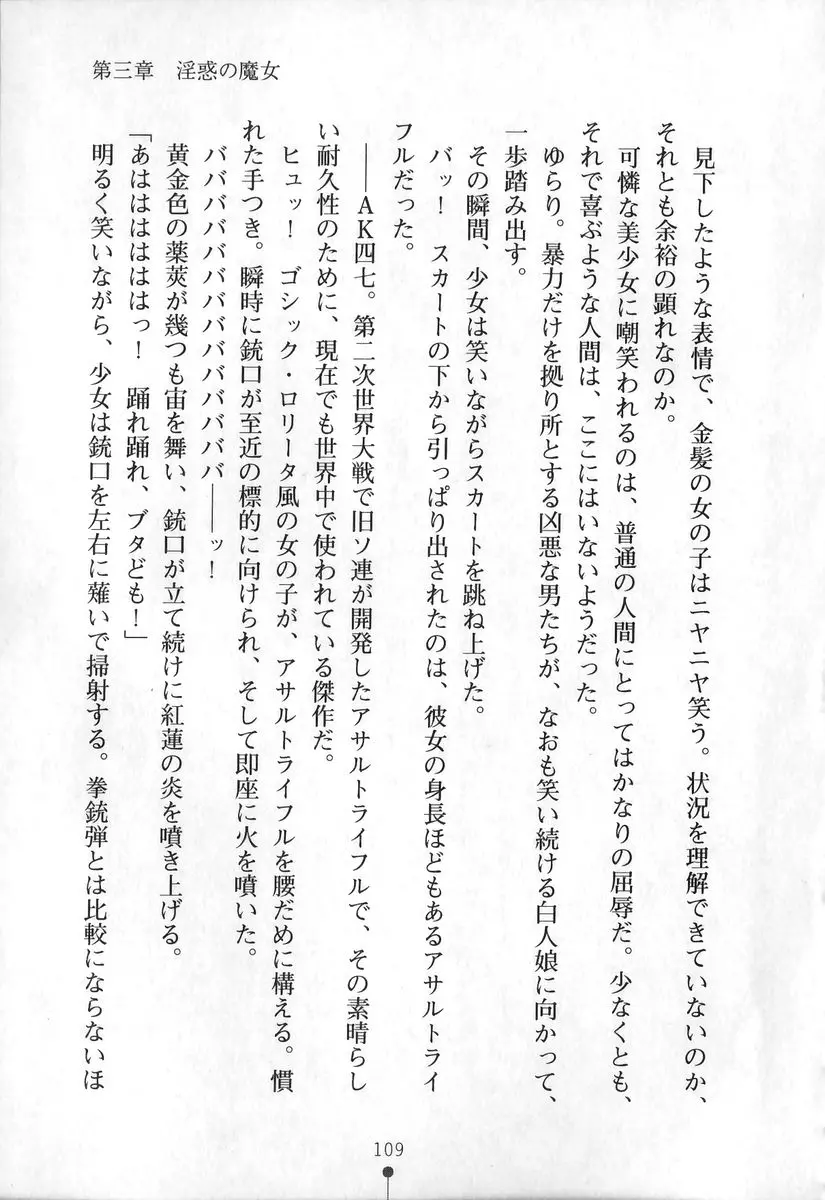 第三章　淫惑の魔女
　見下したような表情で、金髪の女の子はニヤニヤ笑う。状況を理解できていないのか、
それとも余裕の顕れなのか。
　可憐な美少女に嘲笑われるのは、普通の人間にとってはかなりの屈辱だ。少なくとも、
それで喜ぶような人間は、ここにはいないようだった。
　ゆらり。暴力だけを拠り所とする凶悪な男たちが、なおも笑い続ける白人娘に向かって、
一歩踏み出す。
　その瞬間、少女は笑いながらスカートを跳ね上げた。
　バッ！　スカートの下から引っぱり出されたのは、彼女の身長ほどもあるアサルトライ
フルだった。
　――ＡＫ四七。第二次世界大戦で旧ソ連が開発したアサルトライフルで、その素晴らし
い耐久性のために、現在でも世界中で使われている傑作だ。
　ヒュッ！　ゴシック・ロリータ風の女の子が、アサルトライフルを腰だめに構える。慣
れた手つき。瞬時に銃口が至近の標的に向けられ、そして即座に火を噴いた。
　バババババババババババババ――ッ！
　黄金色の薬莢が幾つも宙を舞い、銃口が立て続けに紅蓮の炎を噴き上げる。
「あははははははっ！　踊れ踊れ、ブタども！」
　明るく笑いながら、少女は銃口を左右に薙いで掃射する。拳銃弾とは比較にならないほ
109